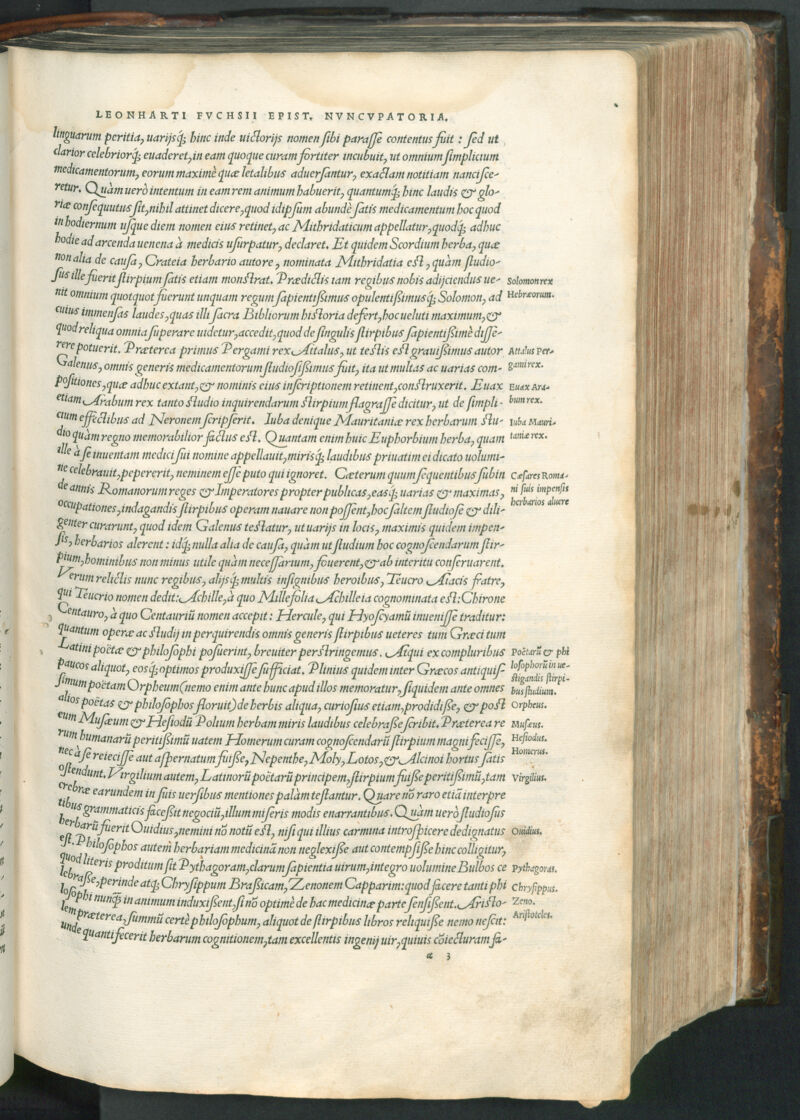 LEONHARTI FVCHSII EPIST. NVNCVPATORIA.
linguarum peritia, uarijsq́; hinc inde uictorijs nomen sibi parasse contentus fuit : sed ut
clarior celebriorq́; euaderet, in eam quoque curam fortiter incubuit, ut omnium simplicium
medicamentorum, eorum maximè quæ letalibus aduersantur, exactam notitiam nancisce-
retur. Quàm uerò intentum in eam rem animum habuerit, quantumq́; hinc laudis & glo-
riæ consequutus sit, nihil attinet dicere, quod id ipsum abundè satis medicamentum hoc quod
in hodiernum usque diem nomen eius retinet, ac Mithridaticum appellatur, quodq́; adhuc
hodie ad arcenda uenena à medicis usurpatur, declaret. Et quidem Scordium herba, quæ
non alia de causa, Crateia herbario autore, nominata Mithridatia est, quàm studio-
sus ille fuerit stirpium satis etiam monstrat. Prædictis iam regibus nobis adijciendus ue-
Solomon rex
nit omnium quotquot fuerunt unquam regum sapientißimus opulentißimusq́; Solomon, ad
Hebræorum.
cuius immensas laudes, quas illi sacra Bibliorum historia defert, hoc ueluti maximum, &
quod reliqua omnia superare uidetur, accedit, quod de singulis stirpibus sapientißimè disse-
rere potuerit. Præterea primus Pergami rex Attalus, ut testis est grauißimus autor
Attalus Per-
Galenus, omnis generis medicamentorum studiosißimus fuit, ita ut multas ac uarias com-
gami rex.
positiones, quæ adhuc extant, & nominis eius inscriptionem retinent, construxerit. Euax
Euax Ara-
etiam Arabum rex tanto studio inquirendarum stirpium flagrasse dicitur, ut de simpli-
bum rex.
cium effectibus ad Neronem scripserit. Iuba denique Mauritaniæ rex herbarum stu-
Iuba Mauri-
dio quàm regno memorabilior factus est. Quantam enim huic Euphorbium herba, quam
taniæ rex.
ille à se inuentam medici sui nomine appellauit, mirisq́; laudibus priuatim ei dicato uolumi-
ne celebrauit, pepererit, neminem esse puto qui ignoret. Cæterum quum sequentibus subin
Cæsares Roma-
de annis Romanorum reges & Imperatores propter publicas, easq́; uarias & maximas,
ni suis impensis
occupationes, indagandis stirpibus operam nauare non possent, hoc saltem studiosè & dili-
herbarios aluere
genter curarunt, quod idem Galenus testatur, ut uarijs in locis, maximis quidem impen-
sis, herbarios alerent : idq́; nulla alia de causa, quàm ut studium hoc cognoscendarum stir-
pium, hominibus non minus utile quàm necessarium, fouerent, & ab interitu conseruarent.
Verum relictis nunc regibus, alijsq́; multis insignibus heroibus, Teucro Aiacis fratre,
qui Teucrio nomen dedit: Achille, à quo Millefolia Achilleia cognominata est: Chirone
Centauro, à quo Centauriũ nomen accepit : Hercule, qui Hyoscyamũ inuenisse traditur:
quantum operæ ac studij in perquirendis omnis generis stirpibus ueteres tum Græci tum
Latini poëtæ & philosophi posuerint, breuiter perstringemus. Atqui ex compluribus
Poëtarũ & phi
paucos aliquot, eosq́; optimos produxisse sufficiat. Plinius quidem inter Græcos antiquis-
losophorũ in ue-
simum poëtam Orpheum (nemo enim ante hunc apud illos memoratur, siquidem ante omnes
stigandis stirpi-
bus studium.
alios poëtas & philosophos floruit) de herbis aliqua, curiosius etiam, prodidisse, & post
Orpheus.
eum Musæum & Hesiodũ Polium herbam miris laudibus celebraße scribit. Præterea re
Musæus.
rum humanarũ peritißimũ uatem Homerum curam cognoscendarũ stirpium magni fecisse,
Hesiodus.
nec à se reiecisse aut aspernatum fuiße, Nepenthe, Moly, Lotos, & Alcinoi hortus satis
Homerus.
ostendunt. Virgilium autem, Latinorũ poëtarũ principem, stirpium fuiße peritißimũ, tam
Virgilius.
crebræ earundem in suis uersibus mentiones palàm testantur. Quare nõ raro etiã interpre
tibus grammaticis faceßit negociũ, illum miseris modis enarrantibus. Quàm uerò studiosus
herbarũ fuerit Ouidius, nemini nõ notũ est, nisi qui illius carmina introspicere dedignatus
Ouidius.
est. Philosophos autem herbariam medicinã non neglexiße aut contempsiße hinc colligitur,
quod literis proditum sit Pythagoram, clarum sapientia uirum, integro uolumine Bulbos ce
Pythagoras.
lebraße, perinde atq́; Chrysippum Braßicam, Zenonem Capparim: quod facere tanti phi
Chrysippus.
losophi nunq̃ in animum induxißent, si nõ optimè de hac medicinæ parte sensißent. Aristo-
Zeno.
lem præterea, summũ certè philosophum, aliquot de stirpibus libros reliquiße nemo nescit:
Aristoteles.
unde quanti fecerit herbarum cognitionem, tam excellentis ingenij uir, quiuis cõiecturam fa-
α 3